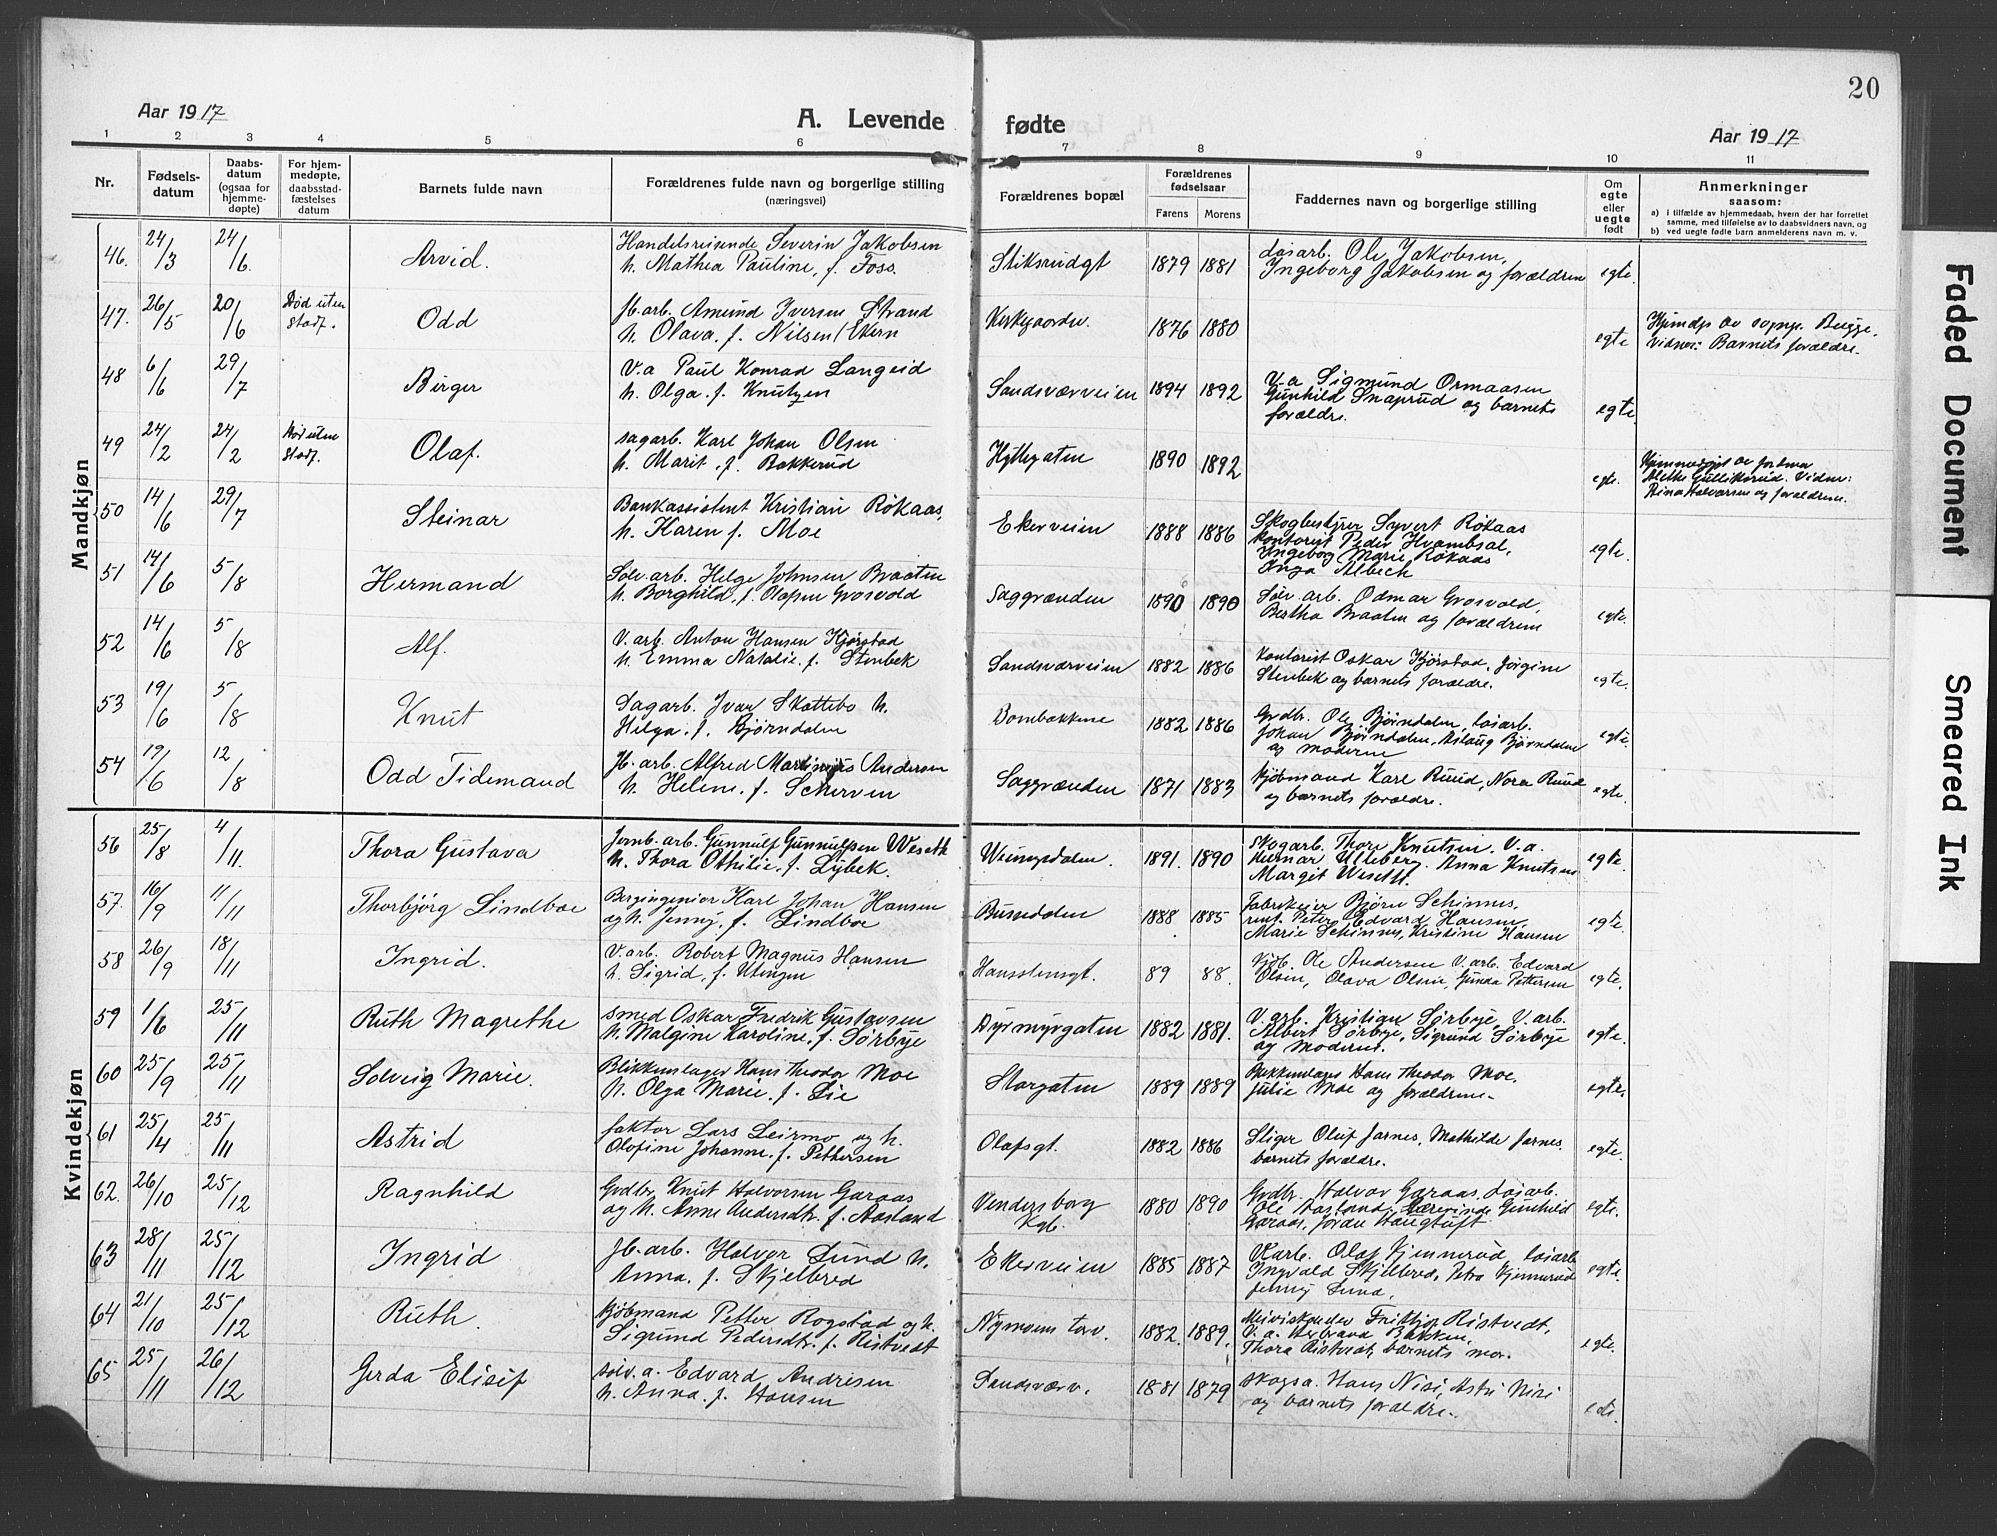 20
Aar 1917
A. Levende fødte
Aar 1917
1 2 3 4 5 6 7 8 9 10 11
Nr.
Fødsels-
datum
Daabs-
datum
(ogsaa for
hjemme-
døpte)
For hjem-
medøpte,
daabsstad-
fæstelses
datum
Barnets fulde navn
Forældrenes fulde navn og borgerlige stilling
(næringsvei)
Forældrenes bopæl
Forældrenes
fødselsaar
Farens Morens
Faddernes navn og borgerlige stilling
Om
egte
eller
uegte
født
Anmerkninger
saasom:
a) i tilfælde av hjemmedaab, hvem der har forrettet
samme, med tilføielse av to daabsvidners navn, og
b) ved uegte fødte barn anmelderens navn m. v.
Mandkjøn
46. 24/3 24/6. Arvid.
Handelsreisende Severin Jakobsen
h. Mathea Pauline, f. Foss.
Stiksrudgt 1879 1881
Løsarb. Ole Jakobsen,
Ingeborg Jakobsen og forældrene egte.
47. 26/5 20/6
Død uten
stadf.
Odd
Jb. arb. Amund Iversen Strand
h. Olava, f. Nilsen/Ekern
Kirkegaardsv. 1876 1880 egte
Hjemdp av sognepr. Bugge.
Vidner: Barnets forældre.
48 6/6 29/7 Birger
V.a Paul Konrad Langeid
h. Olga. f. Knutzen
Sandsværveien 1894 1892
V.a Sigmund Ormaasen
Gunhild Snaprud og barnets
forældre. egte
49 24/2 24/2
Død uten
stadf.
Olaf.
Sagarb. Karl Johan Olsen
h. Marit, f. Bakkerud
Hyttegaten 1890 1892 egte.
Hjemmedøpt av jordmor
Gullikrud. Vidner:
Halvorsen og forældrene.
50 14/6 29/7 Steinar
Bankassistent Kristian Røkaas,
h. Karen f. Moe
Ekerveien 1888 1886
Skogbestyrer Syvert Røkaas
Kontorist Peder Hvambsal,
Ingeborg Marie Røkaas
Inga Albeck egte.
51 14/6 5/8 Hermand
Sølv. arb. Helge Johnsen Braaten
h. Borghild, f. Olafsen Grosvold
Saggrænden 1890 1890
Sølv. arb. Odmar Grosvold,
Bertha Braaten og forældrene egte.
52 14/6 5/8 Alf.
V. arb. Anton Hansen Kjørstad
h. Emma Natalie. f. Stenbek
Sandsværveien 1882 1886
Kontorist Oskar Kjørstad, Jørgine
Stenbek og barnets forældre. egte.
53 19/6 5/8 Knut
Sagarb. Ivar Skattebo h.
Helga. f. Bjørndalen
Bombakkene 1882 1886
Grdbr. Ole Bjørndalen, Løsarb.
Johan Bjørndalen, Aslaug Bjørndalen
og moderne egte.
54 19/6 12/8 Odd Tidemand
Jb. arb. Alfred Martinius Andersen
h. Helene. f. Scherven
Saggrænden 1871 1883
Kjøbmand Karl Ruud, Nora Ruud
og barnets forældre. egte.
Kvindekjøn
56 25/8 4/11. Thora Gustava
Jernb. arb. Gunnulf Gunnulfsen Weseth
h. Thora Othilie, f. Lybek.
1891. 1890
Skogarb. Thore Knutsen. V.a.
Ulleberg. Anna Knutsen
Margit Weseth. egte.
57. 16/9 11/11 Thorbjørg Lindboe
Bergingeniør Karl Johan Hansen
og h. Jenny, f. Lindboe
1888. 1885
Fabrikeier Bjørn Schinnes,
rent. Peter Edvard Hansen,
Marie Schinnes, Kristine Hansen egte.
58 26/9 18/11 Ingrid.
V. arb. Robert Magnus Hansen
h. Sigrid, f. Utengen
Hansstensgt. 89 88.
Kjøb. Ole Andersen V. arb. Edvard
Olsen, Olava Olsen, Gunda Pettersen egte.
59 1/6 25/11 Ruth Magrethe
Smed Oskar Fredrik Gustavsen
h. Malgine Karoline, f. Sørbye
Dyrmyrgaten 1882 1881.
V. arb. Kristian Sørbye, V. arb.
Albert Sørbye, Sigrund Sørbye
og moderne. egte.
60 25/9 25/11 Solveig Marie.
Blikkenslager Hans Theodor Moe
h. Olga Marie. f. Lie
Storgaten 1889 1889
Blikkenslager Hans Theodor Moe.
Julie Moe og forældrene. egte.
61 25/4 25/11 Astrid
faktor Lars Leirmo og h.
Olofine Johanne, f. Pettersen
Olafsgt. 1882 1886
Stiger Oluf Jarnes, Mathilde Jarnes.
barnets forældre. egte.
62. 26/10 25/12 Ragnhild
Grdbr. Knut Halvorsen Garaas
og h. Anne Andersdtr. f. Aasland
Vendersborg
Kgb. 1880 1890
Grdbr. Halvor Garaas, Løsarb.
Ole Aasland, Lærerinde Gunhild
Garaas, Joran Haugtuft egte.
63 28/11 25/12 Ingrid
Jb. arb. Halvor Lund h.
Anna. f. Skjelbred
Ekerveien 1885 1887
V.arb. Olaf Kjennerud, Løsarb
Ingvald Skjelbred, Petra Kjennerud
Jenny Lund, egte.
64 21/10 25/12 Ruth.
Kjøbmand Petter Rogstad og h.
Sigrund Pedersdtr. f. Ristvedt
Nymoens torv. 1882. 1889.
Frithjof Ristvedt,
V. a. Bakken,
Thora Ristvedt, barnets mor. egte.
65 25/11 26/12 Gerda Elisif
Sølv. a. Edvard Andresen
h. Anna. f. Hansen
Sandsværv. 1881 1879
Skogsa. Hans Nisi, Astri Nisi
og barnets forældre. egte.
Faded Document
Smeared Ink